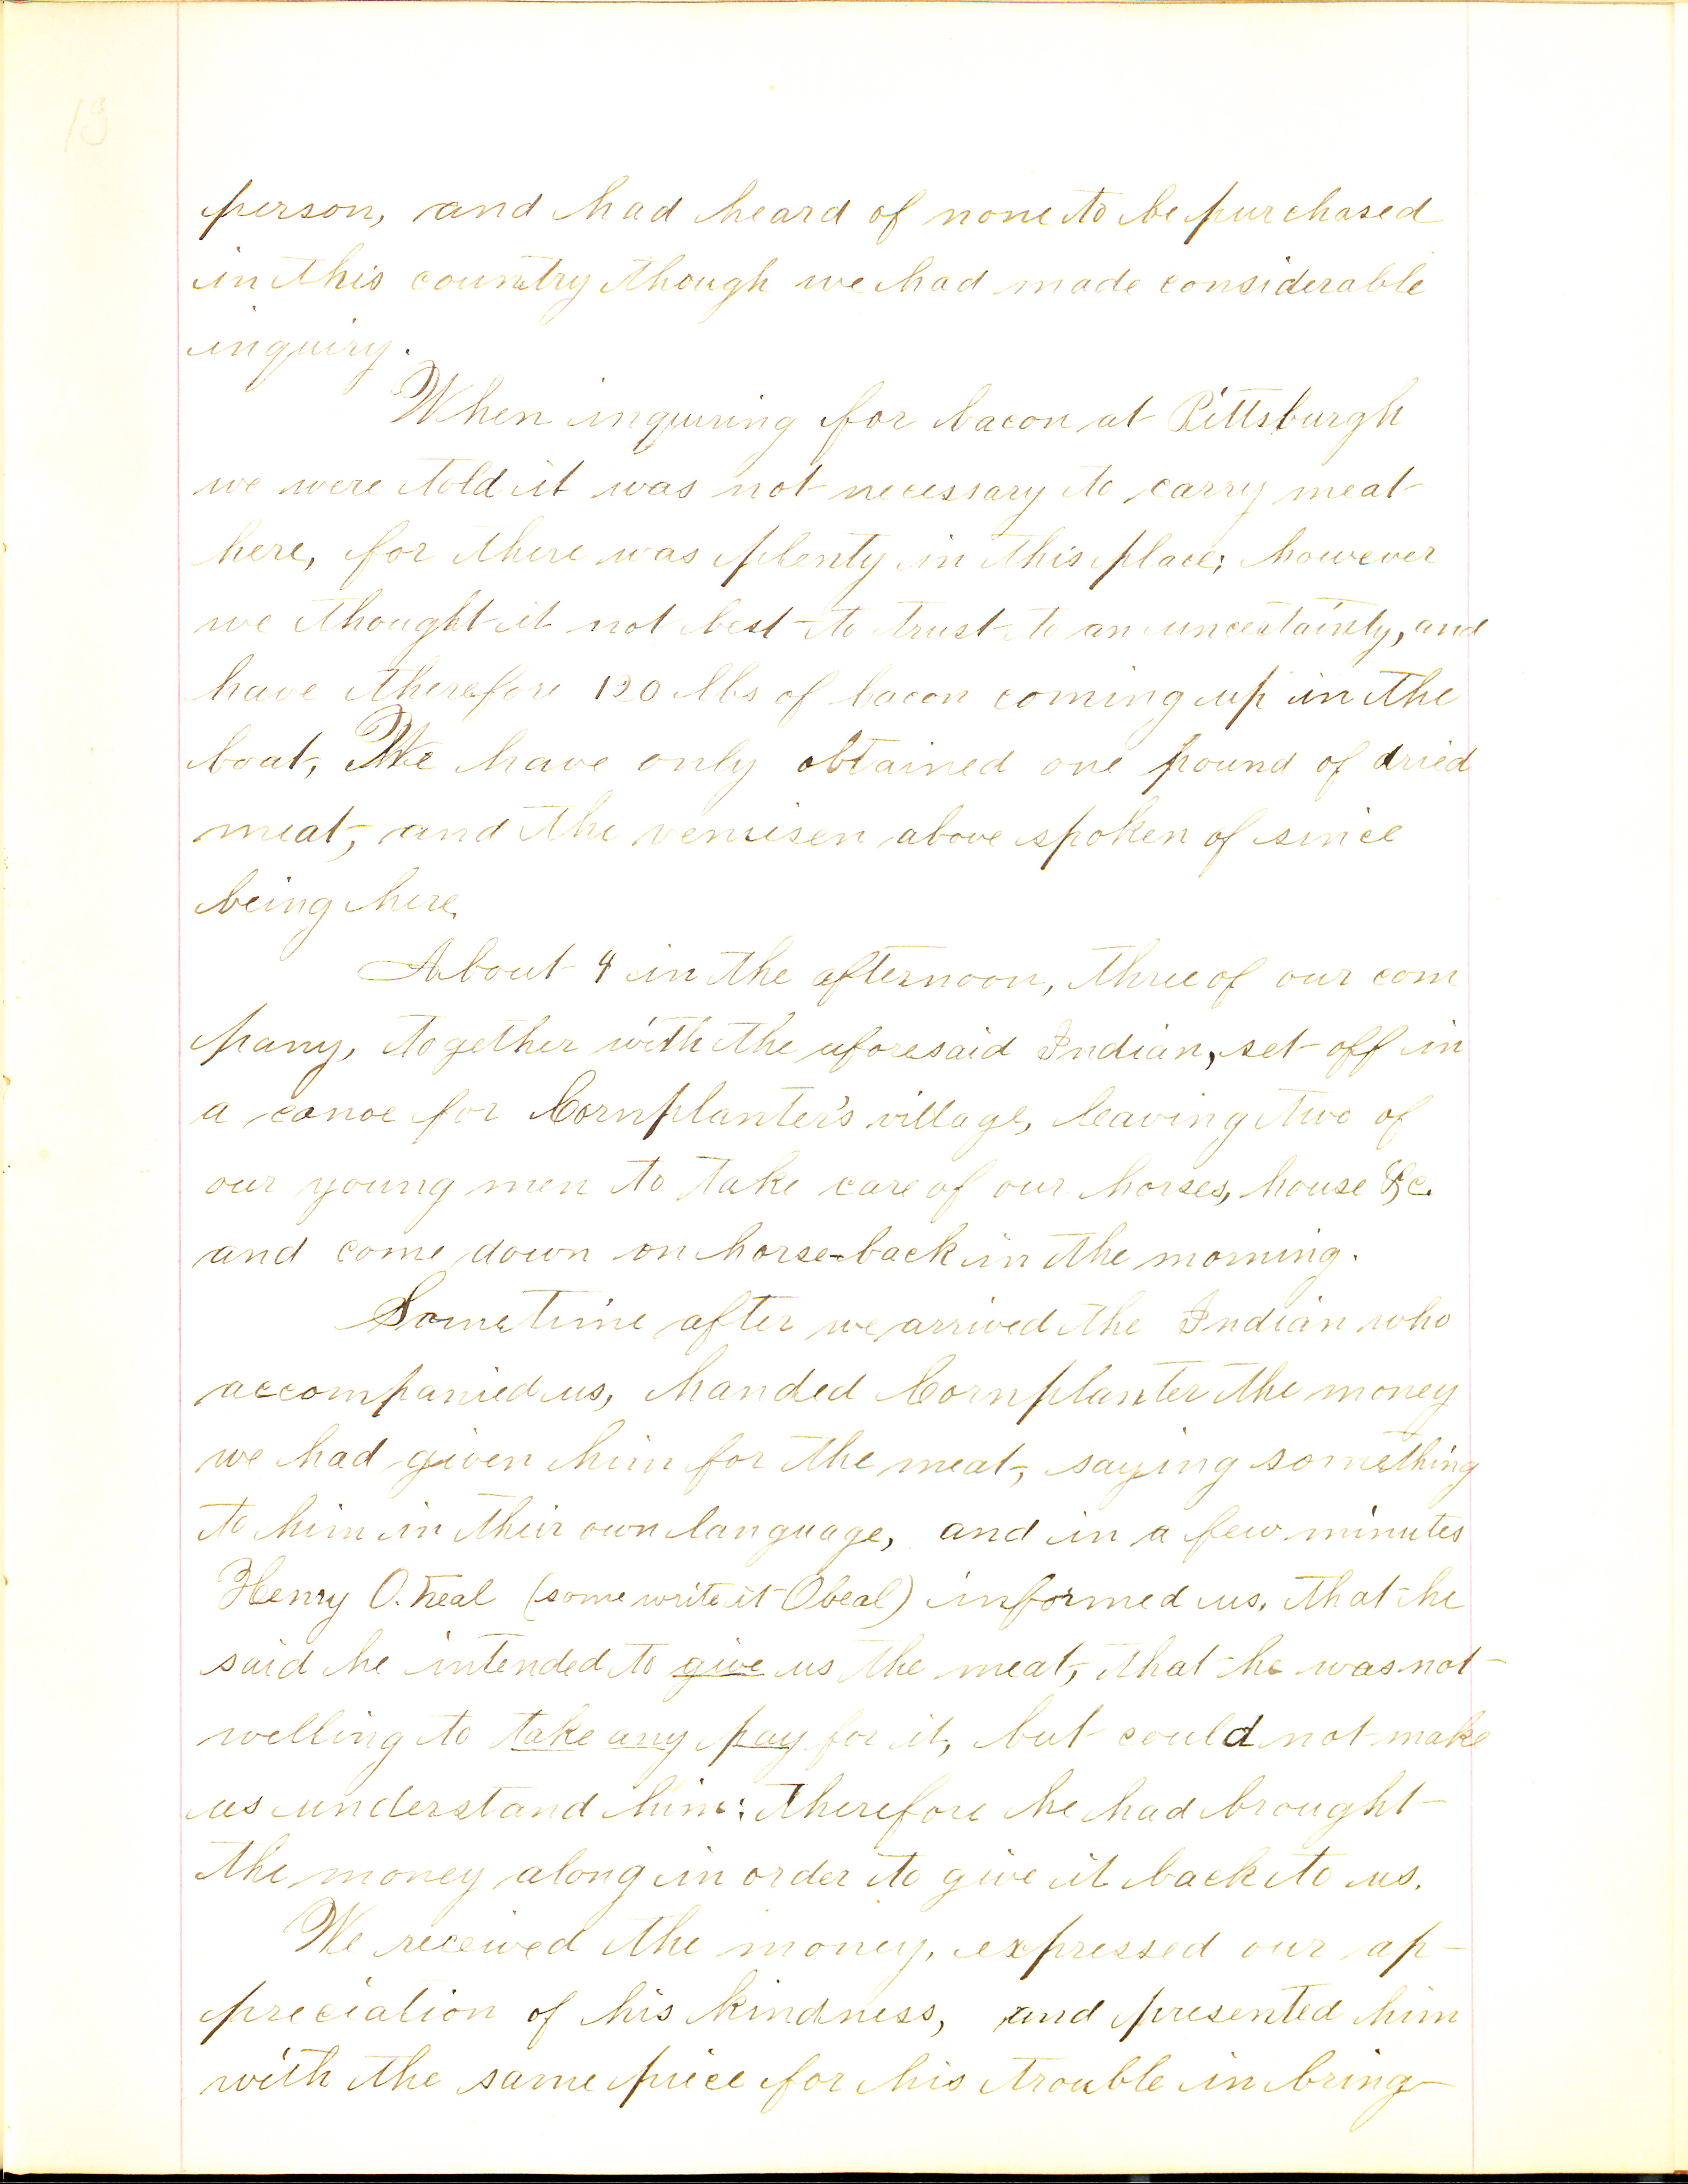 13
person, and had heard of none to be purchased
in this country though we had made considerable
inquiry.
When inquiring for bacon at Pittsburgh
we were told it was not necessary to carry meat
here, for there was plenty in this place; however
we thought it not best to trust to an uncertainty, and
have therefore 120 lbs of bacon coming up in the
boat, We have only obtained one pound of dried
meat, and the venisen above spoken of since
being here.
About 4 in the afternoon, three of our com
pany, together with the aforesaid Indian, set off in
a canoe for Cornplanter's village, leaving two of
our young men to take care of our horses, house &c.
and come down on horse-back in the morning.
Sometime after we arrived the Indian who
accompanied us, handed Cornplanter the money
we had given him for the meat, saying something
to him in their own language, and in a few minutes
Henry O.Neal (some write it Obeal) informed us, that he
said he intended to give us the meat, that he was not
welling to take any pay for it, but could not make
us understand him: therefore he had brought
the money along in order to give it back to us.
We received the money, expressed our ap-
preciation of his kindness, and presented him
with the same piece for his trouble in bring-